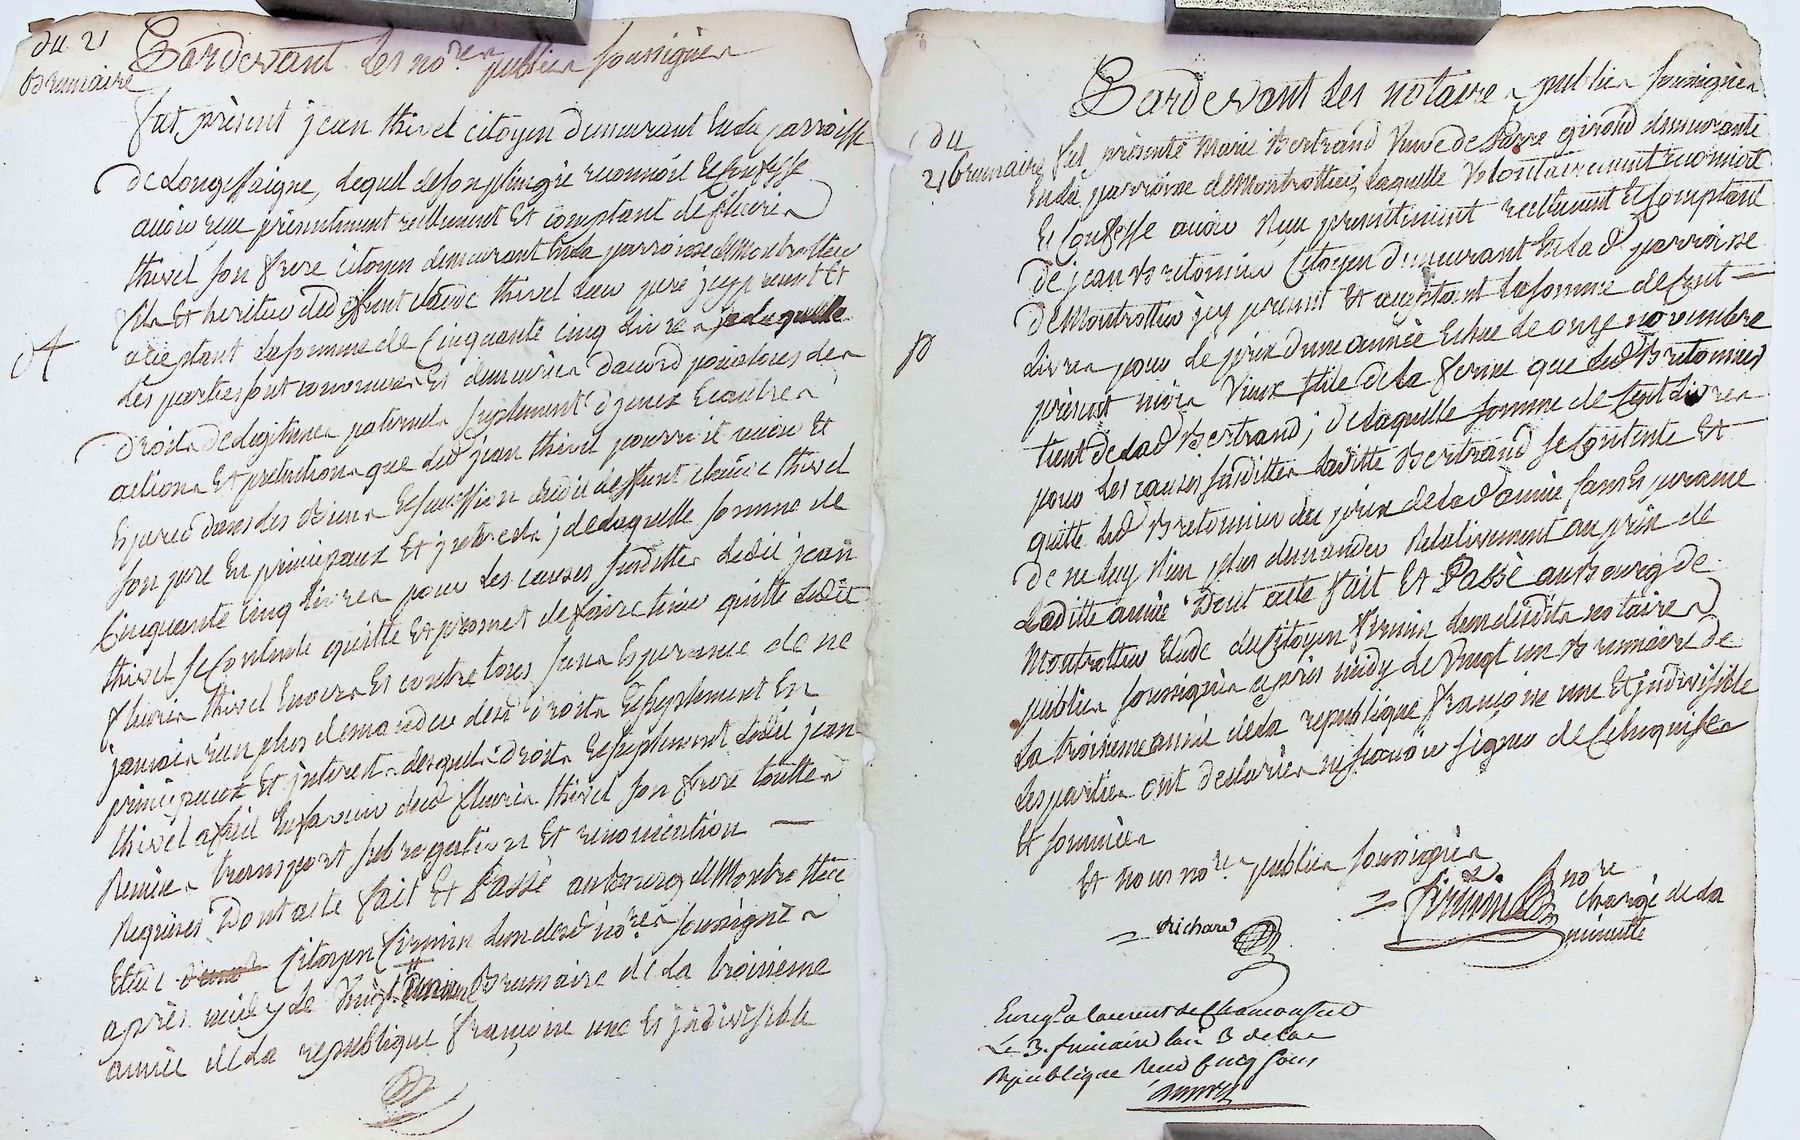 du 21
Brumaire
Pardevant les nores publics soussignés
fut présent jean thivel citoyen demeurant en la parroisse
de Longessaigne, lequel de son plein gré reconnoit et confesse
avoir reçu présentement reellement et comptant de fleurie
thivel son frere citoyen demeurant en la parroisse de Montrottier
fils et heritier dud deffunt claude thivel leur pere jcy present et
aceptant la somme de Cinquante cinq livres
les parties sont convenues et demeurées daccord pour tous les
droits de legitimes paternels suplement dyceux et autres
actions et pretentions que led jean thivel pourroit avoir et
esperer dans les Biens et succession dudit deffunt claude thivel
son pere en principaux et jnterests; de laquelle somme de
Cinquante cinq livres pour les causes susdittes ledit jean
thivel se contente quitte et promet de faire tenir quitte ledit
fleurie thivel envers et contre tous sans esperance de ne
jamais rien plus demander desd droits et suplement en
principaux et jnterets desquels droits et suplement ledit jean
thivel a fait en faveur dud fleurie thivel son frere touttes
Remises transport subrogations et renonciation —
Requises Dont acte fait et Passé au bourg de Montrottier
Etude citoyen firmin lun desd nores soussignés
après midy le Vingt un Brumaire de la troisieme
année de la republique françoise une et jndivisible
du
21 brumaire
Pardevant les notaires publics soussignés
fut présente Marie Bertrand Veuve de pierre giroud demeurante
en la parroisse de Montrottier, laquelle volontairement reconnoit
et confesse avoir reçu presentement reellement et comptant
de jean Bretonnier Citoyen demeurant en lad parroisse
de Montrottier jcy present et aceptant la somme de Cent —
livres pour le prix dune année echue le onze novembre
présent mois vieux stile de la ferme que led Bretonnier
tient de lad Bertrand; de laquelle somme de Cent livres
pour les causes susdittes laditte Bertrand se contente et
quitte led Bretonnier du prix de lad année sans esperance
de ne luy rien plus demander Relativement au prix de
laditte année Dont acte fait et Passé au Bourg de
Montrottier Etude du Citoyen firmin lun desdits notaires
publics soussignés après midy le Vingt un Brumaire de
la troisieme année de la republique françoise une et jndivisible
les parties ont declarées ne scavoir signer de ce enquises
et sommées
et nous nores publics soussignés
= Richard
= firmin nore
chargé de la
minutte
Enregé a laurent de Chamousset
Le 3. frimaire lan 3 de la
Republique Recu cinq sous